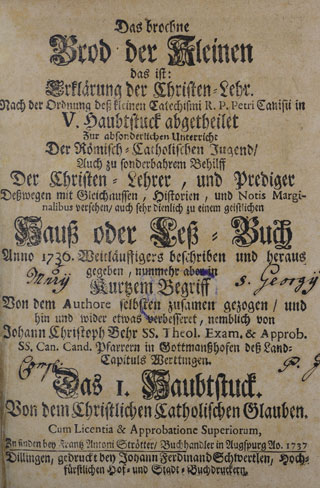 Das brochne
Brod der Kleinen
das ist:
Erklärung der Christen-Lehr.
Nach der Ordnung deß kleinen Catechismi R. P. Petri Canisii in
V. Haubtstuck abgetheilet
Zur absonderlichen Unterricht
Der Römisch-Catholischen Jugend/
Auch zu sonderbahrem Behilff
Der Christen-Lehrer, und Prediger
Deßwegen mit Gleichnussen, Historien, und Notis Margi-
nalibus versehen/ auch sehr dienlich zu einem geistlichen
Hauß oder Leß-Buch
Anno 1736. Weitläuffigers beschriben und heraus
gegeben, nunmehr aber in
s. Georgy
Kurtzem Begriff
Von dem Authore selbsten zusamen gezogen/ und
hin und wider etwas verbesseret, nemblich von
Johann Christoph Behr SS. Theol. Exam. & Approb.
SS. Can. Cand. Pfarrern in Gottmanßhofen deß Land-
Capituls Wertingen.
Das 1. Haubtstuck.
Von dem Christlichen Catholischen Glauben.
Cum Licentia & Approbatione Superiorum,
Zu finden bey Frantz Antoni Strötter/ Buchhandler in Augspurg Ao. 1737
Dillingen, gedruckt bey Johann Ferdinand Schwertlen, Hoch-
fürstlichen Hof- und Stadt-Buchdruckern.